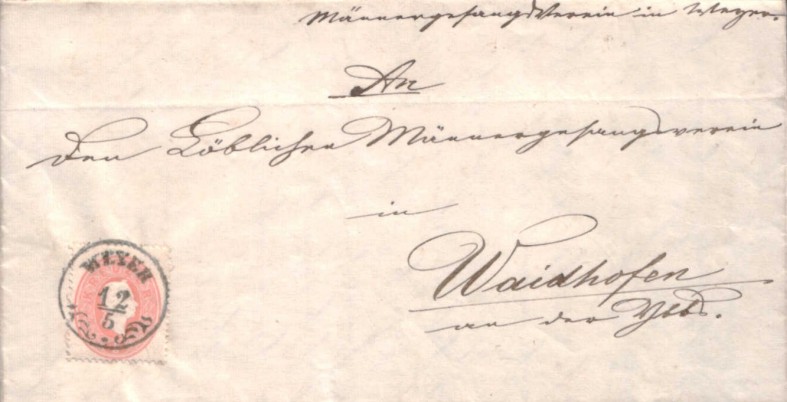 Männergesangsverein in Weyer.
An
den Löblichen Männergesangsverein
in
Waidhofen
an der Ybbs.
WEYER
12
5